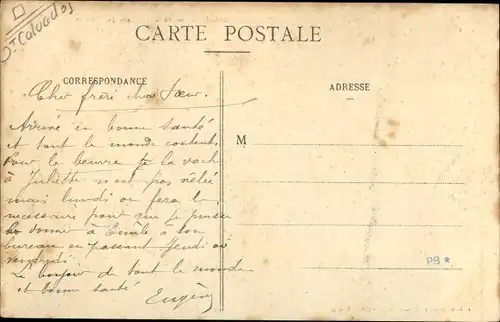 Dt Calvados
CARTE POSTALE
CORRESPONDANCE
ADRESSE
Cher frère chère Sœur
Arrivé en bonne santé
et tout le monde contents
Pour le beurre la vach
à Juliette n est pas vêlée
mais lundi on fera le
nécessaire pour que je puisse
donner à Emile à son
bureau en passant Jeudi ou
vendredi
Le bonjour de tout le monde
et bonne santé
Eugène
M
PB *